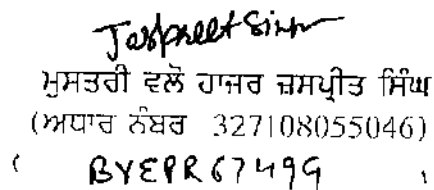 Jaspreet Singh
ਮੁਸਤਰੀ ਵਲੋਂ ਹਾਜਰ ਜ਼ਸਪ੍ਰੀਤ ਸਿੰਘ
(ਅਧਾਰ ਨੰਬਰ 327108055046)
( BYEPR6749G )